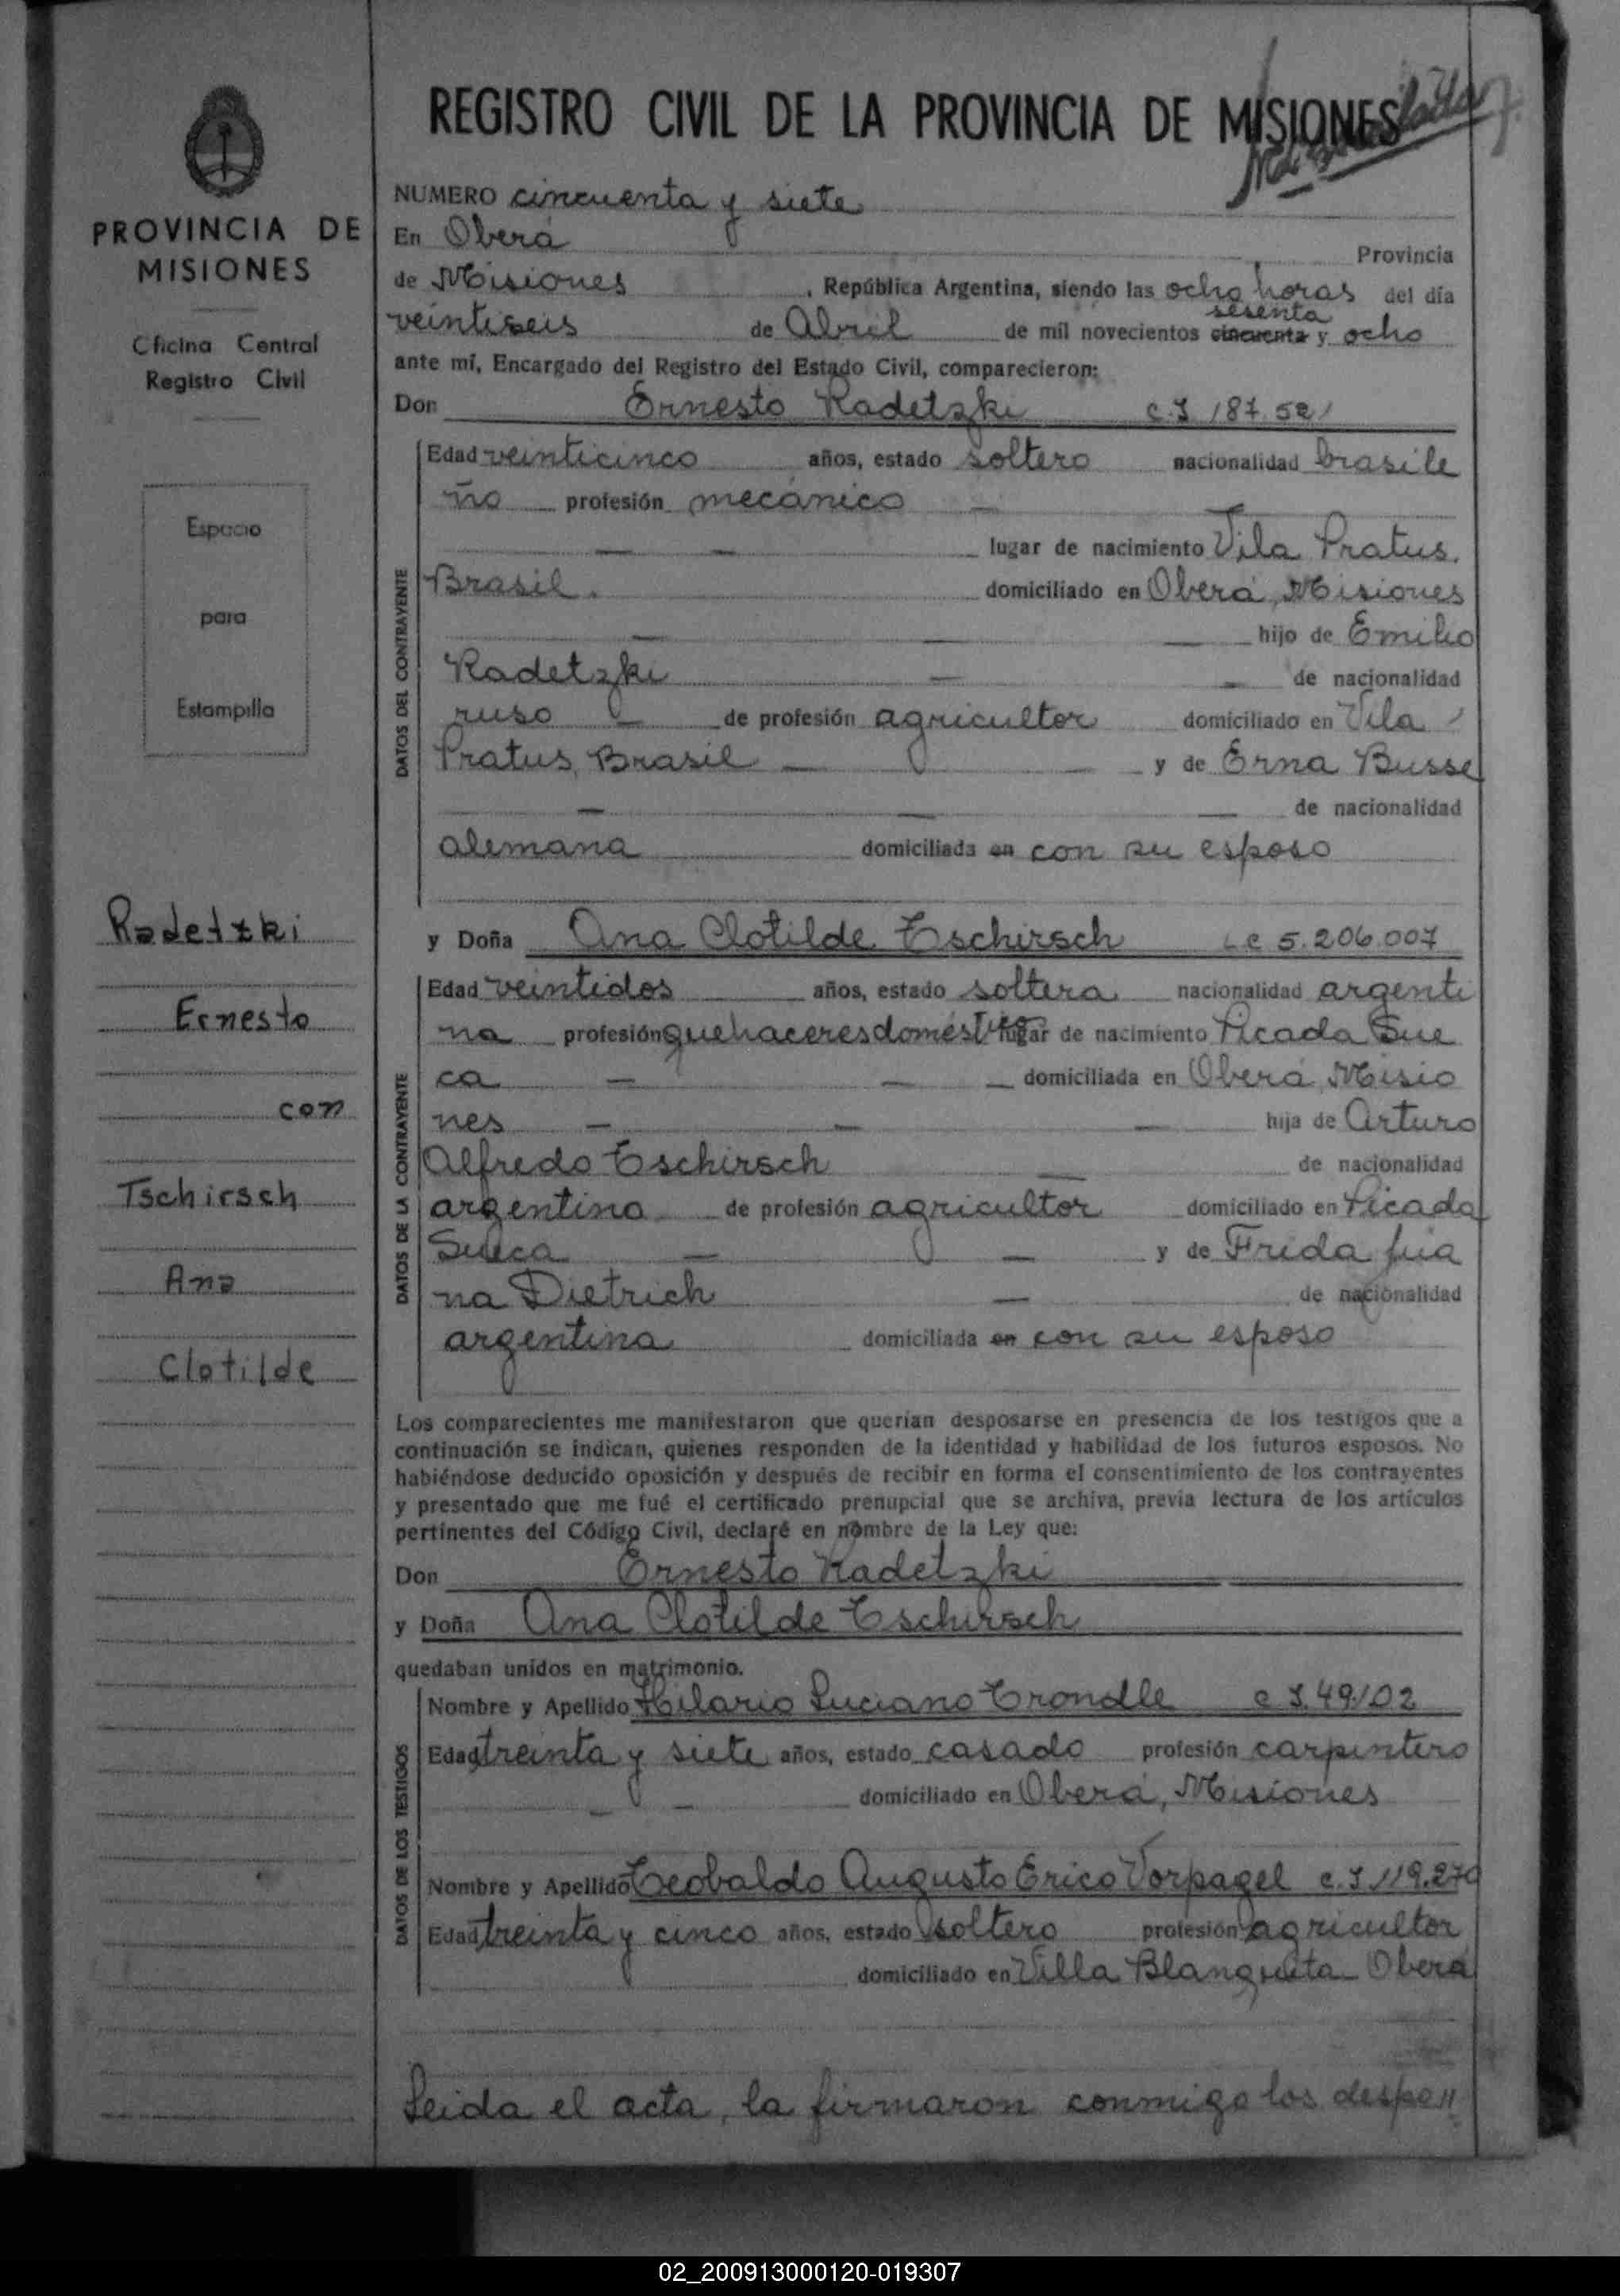 REGISTRO CIVIL DE LA PROVINCIA DE MISIONES
PROVINCIA DE
MISIONES
Oficina Central
Registro Civil
Espacio
para
Estampilla
Radetzki
Ernesto
con
Tschirsch
Ana
Clotilde
NUMERO cincuenta y siete
En Oberá
Provincia
de Misiones , República Argentina, siendo las ocho horas del día
sesenta
veintiseis de Abril de mil novecientos cincuenta y ocho
ante mí, Encargado del Registro del Estado Civil, comparecieron:
Don Ernesto Radetzki C.I 187.521
DATOS DEL CONTRAYENTE
Edad veinticinco años, estado soltero nacionalidad brasile
ño profesión mecánico
lugar de nacimiento Vila Pratus.
Brasil. domiciliado en Oberá, Misiones
hijo de Emilio
Radetzki de nacionalidad
ruso de profesión agricultor domiciliado en Vila
Pratus, Brasil y de Erna Busse
de nacionalidad
alemana domiciliada en con su esposo
y Doña Ana Clotilde Tschirsch L.C 5.206.007
DATOS DE LA CONTRAYENTE
Edad veintidos años, estado soltera nacionalidad argenti
na profesión quehaceres domésticos lugar de nacimiento Picada Sue
ca domiciliada en Oberá, Misio
nes hija de Arturo
Alfredo Tschirsch de nacionalidad
argentino de profesión agricultor domiciliado en Picada
Sueca y de Frida Jua
na Dietrich de nacionalidad
argentina domiciliada en con su esposo
Los comparecientes me manifestaron que querían desposarse en presencia de los testigos que a
continuación se indican, quienes responden de la identidad y habilidad de los futuros esposos. No
habiéndose deducido oposición y después de recibir en forma el consentimiento de los contrayentes
y presentado que me fué el certificado prenupcial que se archiva, previa lectura de los artículos
pertinentes del Código Civil, declaré en nombre de la Ley que:
Don Ernesto Radetzki
y Doña Ana Clotilde Tschirsch
quedaban unidos en matrimonio.
DATOS DE LOS TESTIGOS
Nombre y Apellido Hilario Luciano Trondle C.I. 49.102
Edad treinta y siete años, estado casado profesión carpintero
domiciliado en Oberá, Misiones
Nombre y Apellido Teobaldo Augusto Erico Vorpagel C.I 119.270
Edad treinta y cinco años, estado soltero profesión agricultor
domiciliado en Villa Blanquita Oberá
Leida el acta, la firmaron conmigo los despo//
02_200913000120-019307